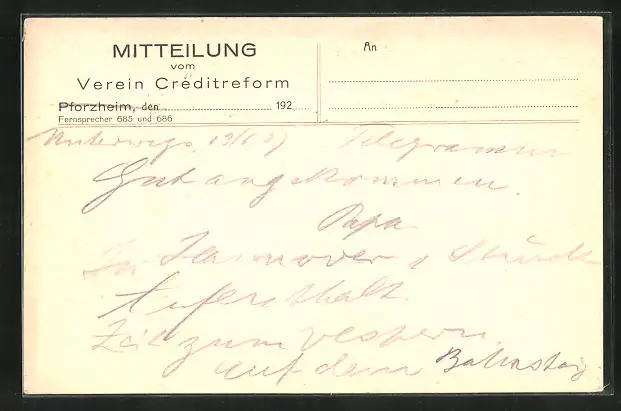 MITTEILUNG
vom
Verein Creditreform
Pforzheim, den 192
Fernsprecher 685 und 686
An
Unterwegs, 19/6 27 Telegramm
Gut angekommen.
Papa
In Hannover 1 Stunde
Aufenthalt.
Zeit zum Vespern
auf dem Bahnsteig.